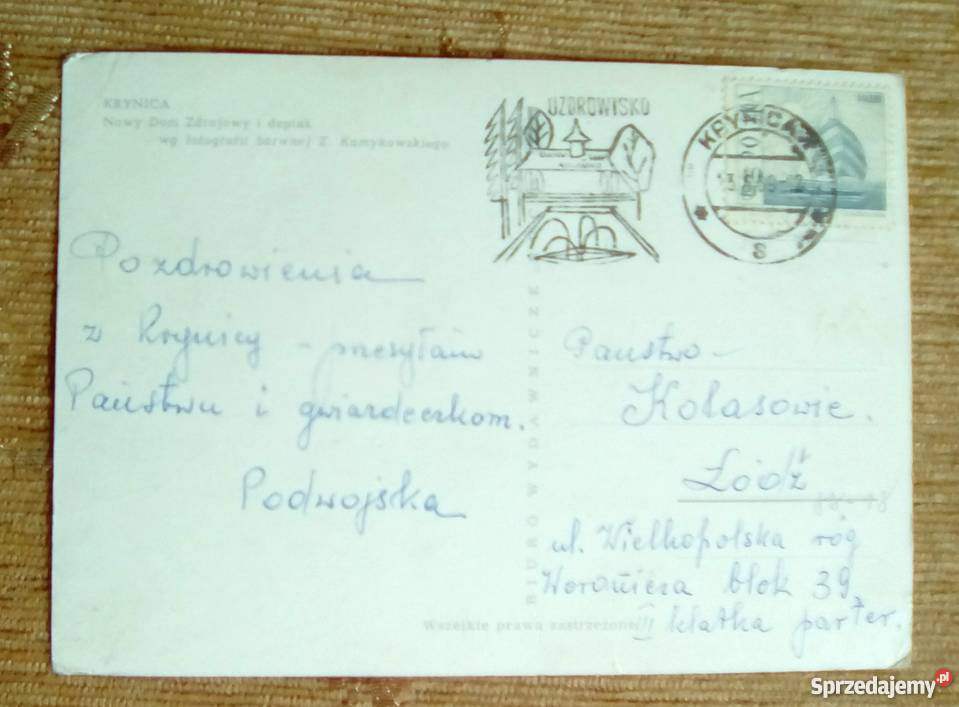 KRYNICA
Nowy Dom Zdrojowy i deptak
wg fotografii barwnej Z. Kamykowskiego
UZDROWISKO
KRYNICA
13
s
Pozdrowienia
z Krynicy – przesyłam
Państwu i gwiardeczkom.
Podwojska
BIURO WYDAWNICZE
Państwo –
Kołasowie.
Łódź
ul. Wielkopolska róg
blok 39,
II klatka parter.
Wszelkie prawa zastrzeżone
Sprzedajemy.pl